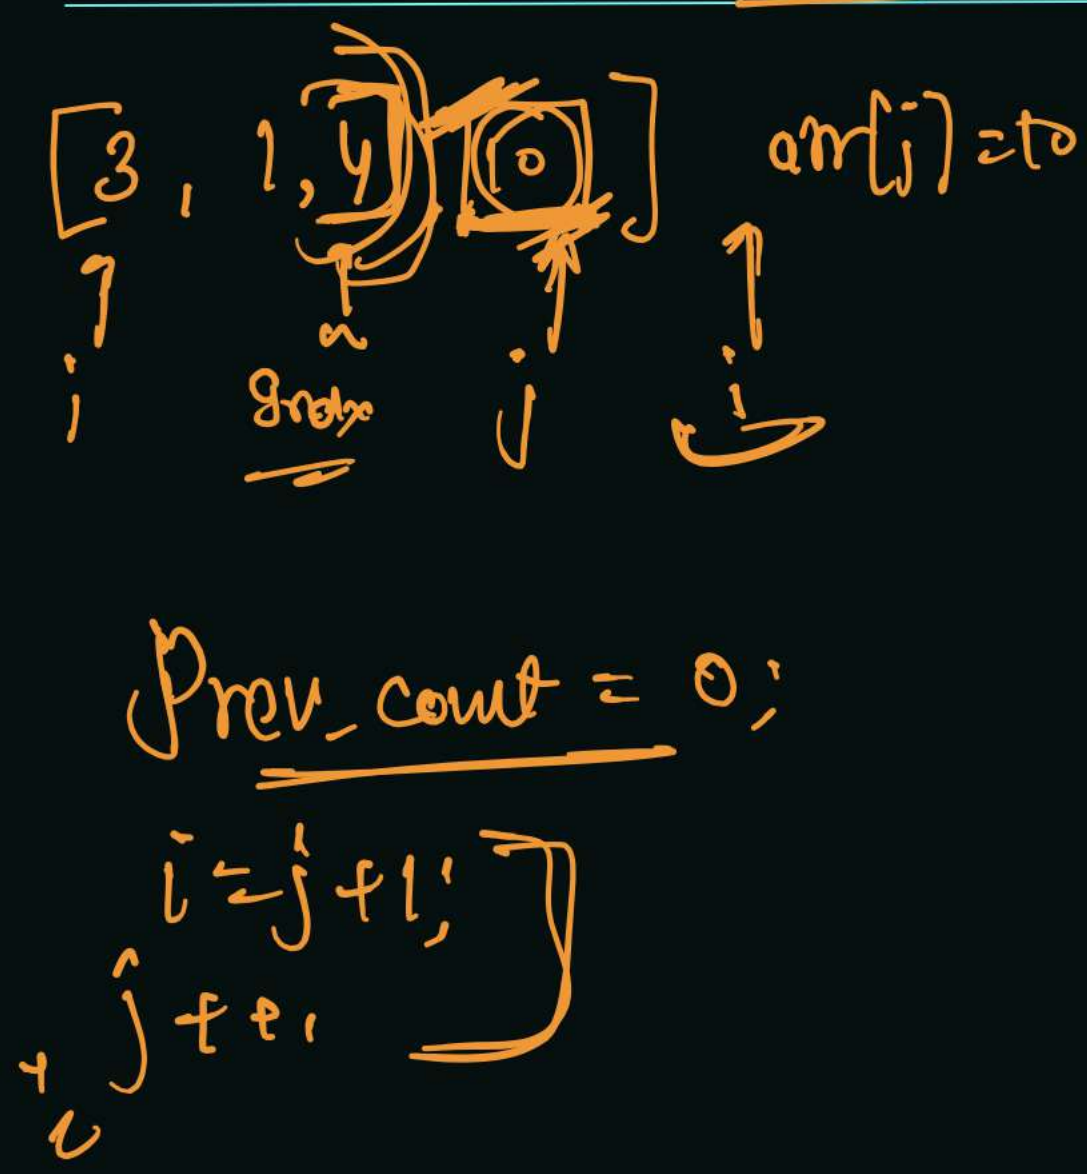 [3, 1, 4, 10] arr[j] = 10
i j i
Prev_count = 0;
i = j + 1;
j++;